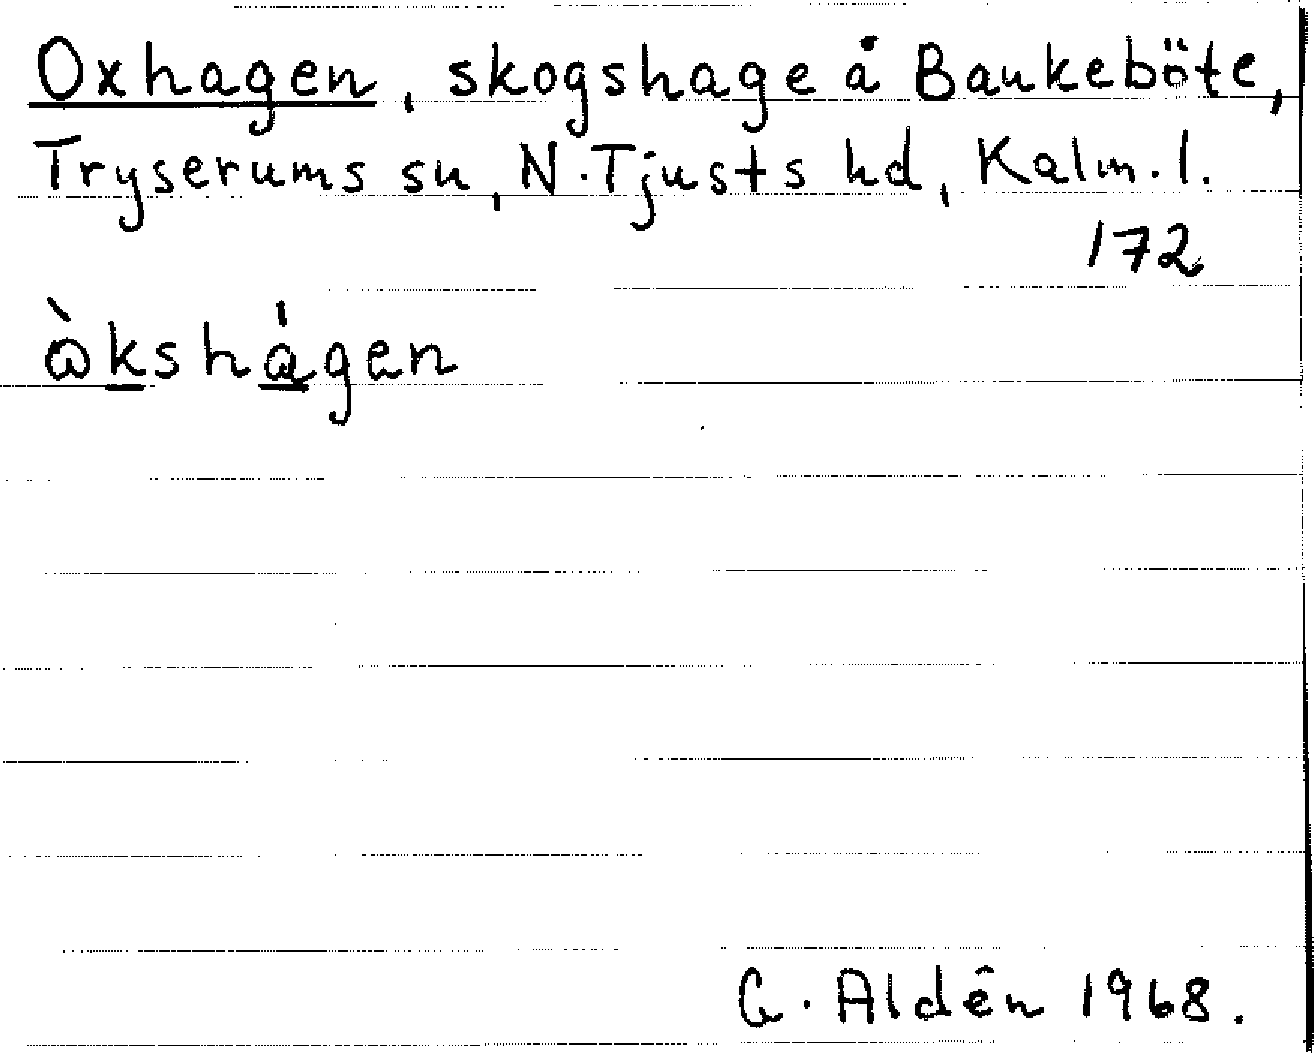 Oxhagen, skogshage å Baukeböte,
Tryserums sn, N. Tjusts hd, Kalm. l.
172
òkshágen
G. Aldén 1968.